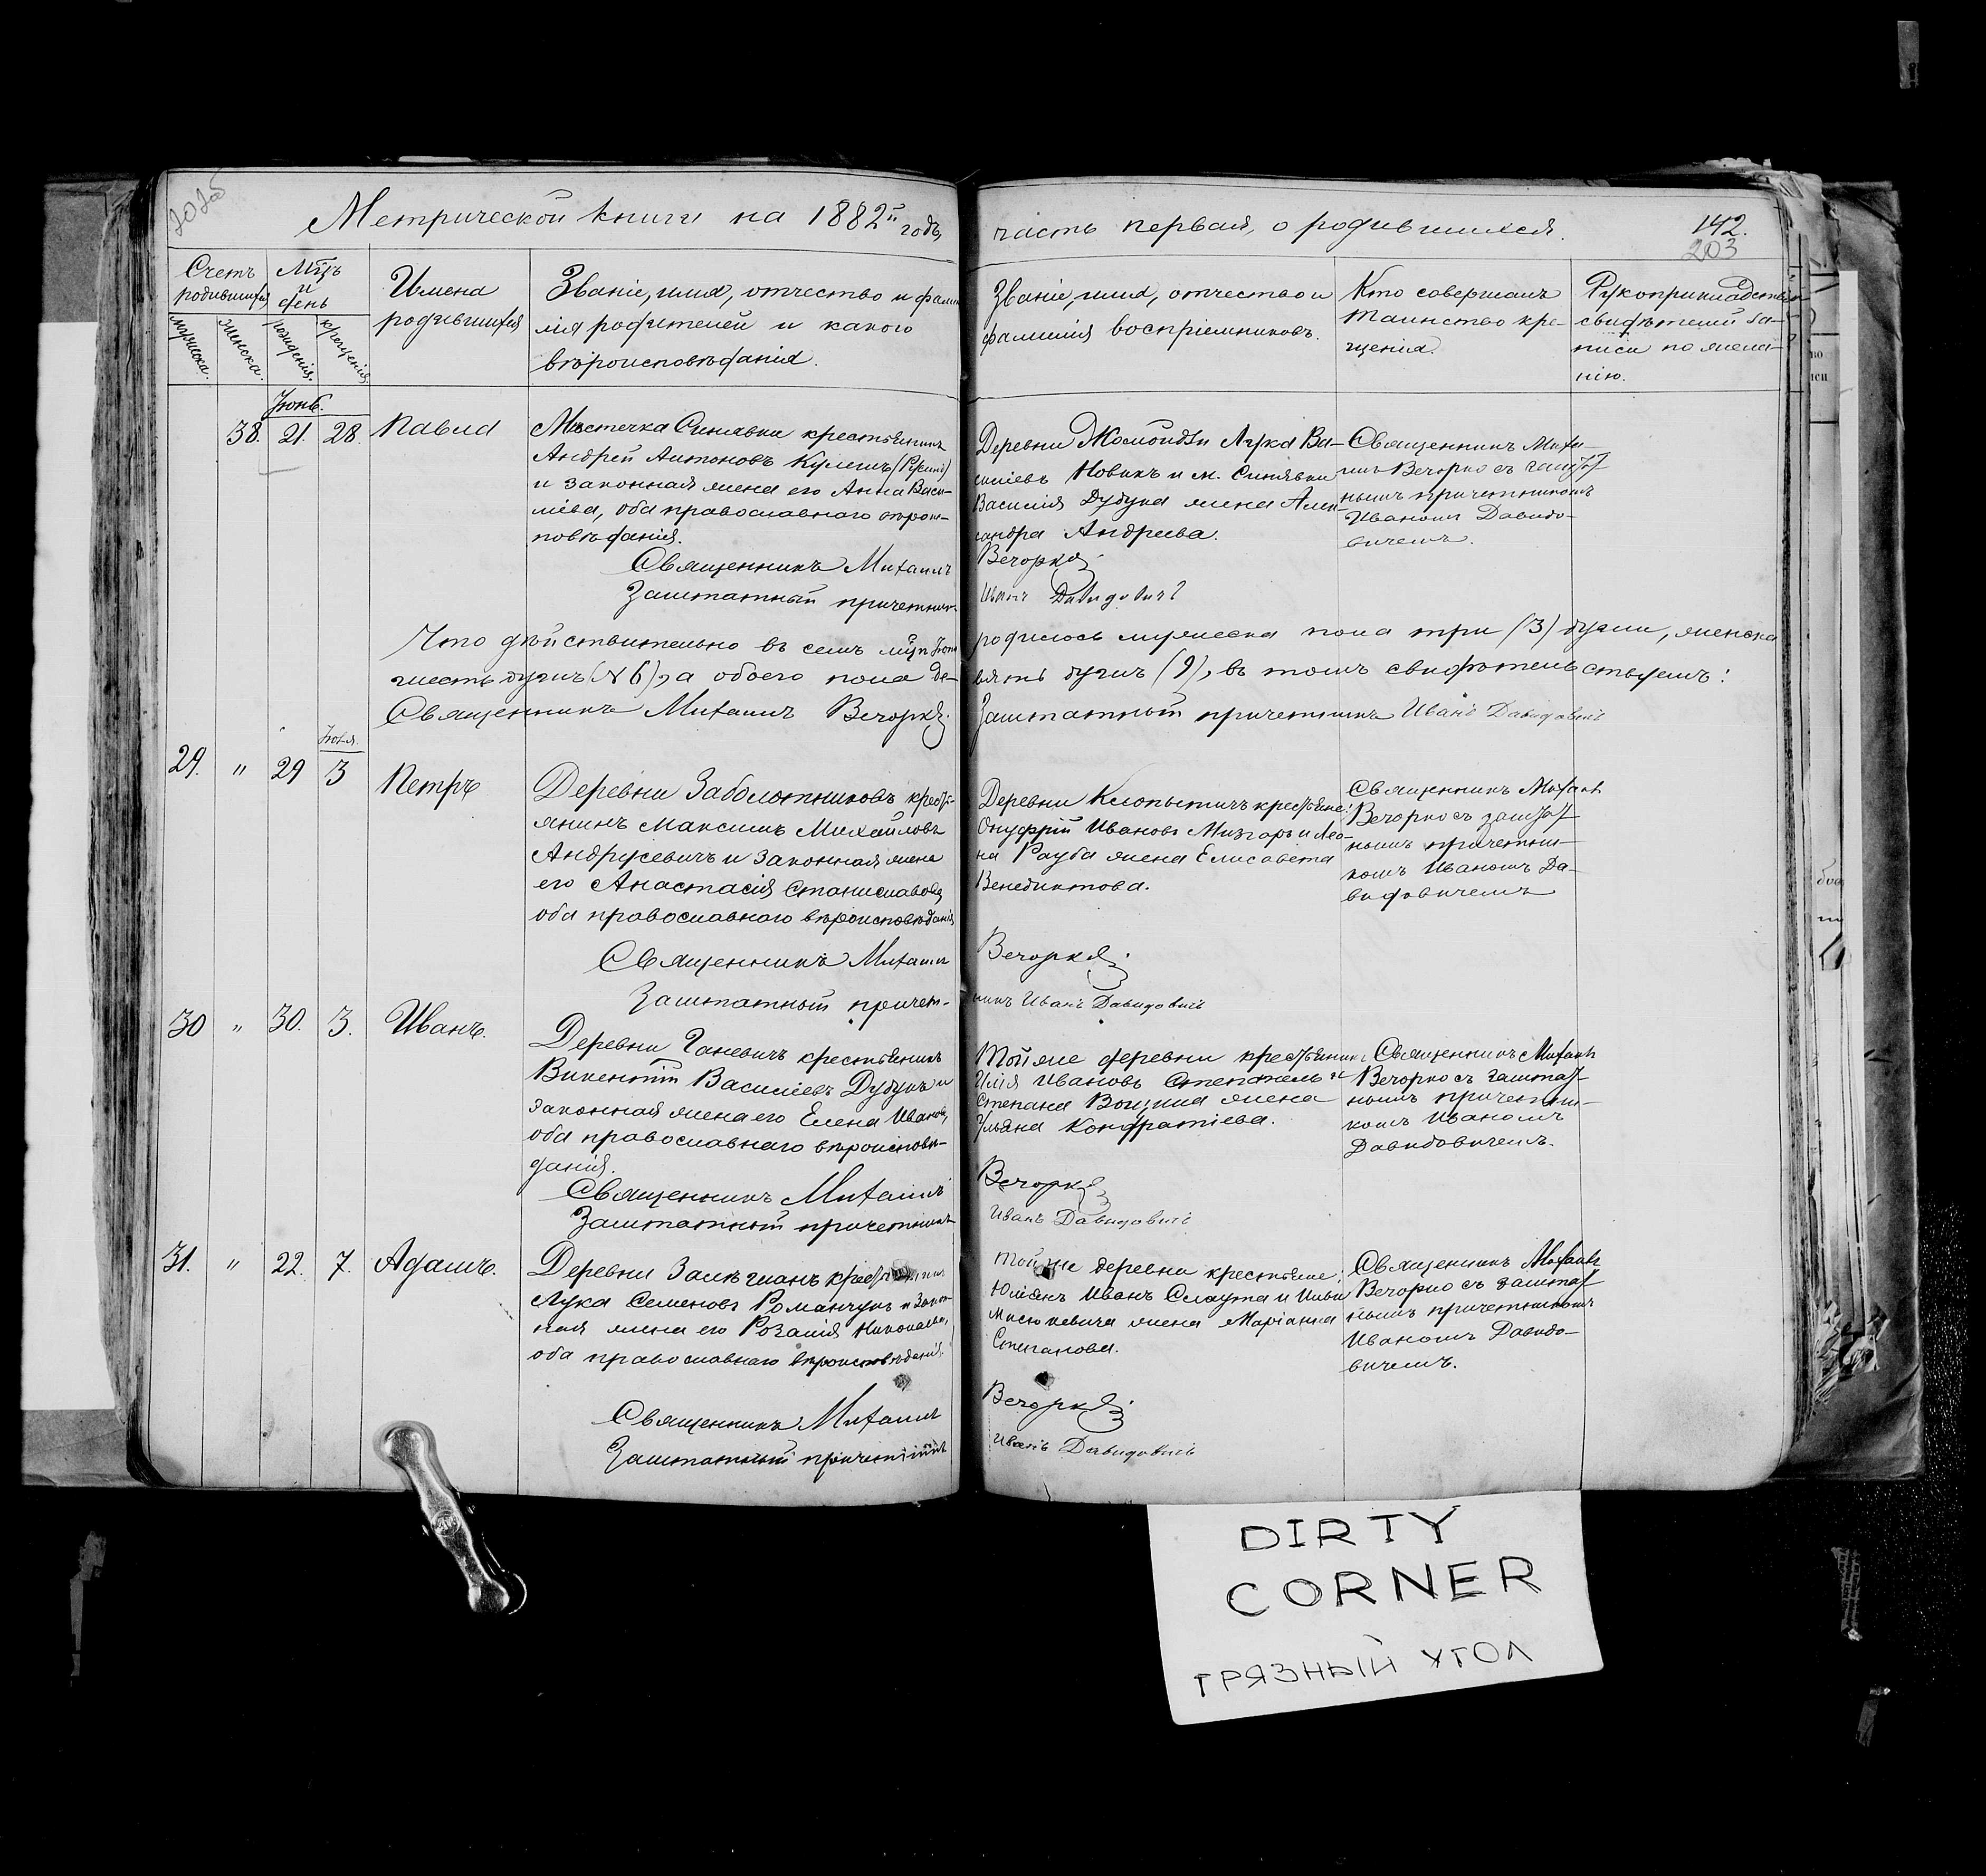 Метрической книги на 1882й годъ,
часть первая, о родившихся.
142.
203
Счетъ родившихся
Мцъ и день
Имена родившихся
Званіе, имя, отчество и фами-
лія родителей и какого
вѣроисповѣданія.
Званіе, имя, отчество и
фамилія воспріемниковъ.
Кто совершалъ
таинство кре-
щенія.
Рукоприкладство
свидѣтелей за-
писи по жела-
нію.
мужеска.
женска.
рожденія.
крещенія.
Іюнь.
38. 21. 28. Павла
Мѣстечка Синявки крестьянинъ
Андрей Антоновъ Кулешъ
и законная жена его Анна Васи-
ліева, оба православнаго вѣроис-
повѣданія.
Священникъ Михаилъ
Заштатный причетникъ
Деревни Лука Ва-
силіевъ Новикъ и м. Синявки
Василія Дубука жена Алек-
сандра Андреева.
Вечорко
Иванъ Давидовичъ
Священникъ Миха-
илъ Вечорко съ заштат-
нымъ причетникомъ
Иваномъ Давидо-
вичемъ.
Что дѣйствительно въ семъ мцѣ Іюнѣ
родилось мужеска пола три (3) души, женска
шесть душъ (№ 6), а обоего пола де-
вять душъ (9), въ томъ свидѣтельствуемъ:
Священникъ Михаилъ Вечорко
Заштатный причетникъ Иванъ Давидовичъ
Іюля.
29. " 29 3 Петръ
Деревни Заболотниковъ кресть-
янинъ Максимъ Михайловъ
Андрусевичъ и законная жена
его Анастасія Станиславова,
оба православнаго вѣроисповѣданія
Священникъ Михаилъ
Заштатный причет-
Деревни Клопытичъ крестьяне:
Онуфрій Ивановъ Мизгаръ и Лео-
на Рауба жена Елисавета
Венедиктова.
Вечорко
никъ Иванъ Давидовичъ
Священникъ Михаилъ
Вечорко съ заштат-
нымъ причетни-
комъ Иваномъ Да-
видовичемъ
30 " 30. 3. Иванъ.
Деревни Ганевичъ крестьянинъ
Викентій Василіевъ Дубукъ и
законная жена его Елена Иванова,
оба православнаго вѣроисповѣ-
данія.
Священникъ Михаилъ
Заштатный причетникъ
Той же деревни крестьянинъ
Илія Ивановъ и
Степана жена
Ульяна Кондратіева.
Вечорко
Иванъ Давидовичъ
Священникъ Михаилъ
Вечорко съ заштат-
нымъ причетни-
комъ Иваномъ
Давидовичемъ.
31. " 22. 7. Адамъ.
Деревни крестьянинъ
Лука Семеновъ Романчукъ и закон-
ная жена его Розалія Николаева,
оба православнаго вѣроисповѣданія.
Священникъ Михаилъ
Заштатный причетникъ
Той же деревни крестьяне:
Юліанъ Иванъ Слаута и
жена Маріанна
Степанова.
Вечорко
Иванъ Давидовичъ
Священникъ Михаилъ
Вечорко съ заштат-
нымъ причетникомъ
Иваномъ Давидо-
вичемъ.
DIRTY
CORNER
ГРЯЗНЫЙ УГОЛ